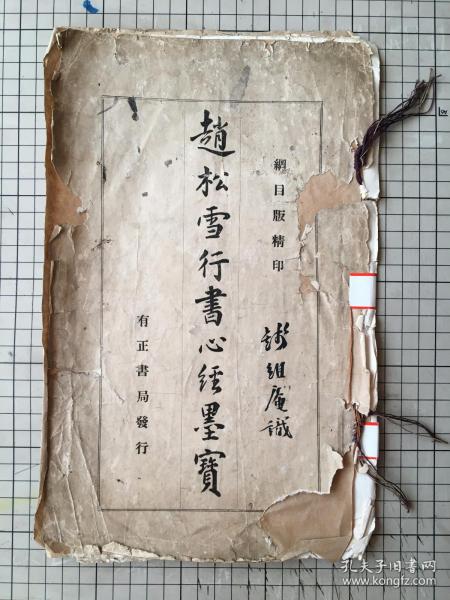 網目版精印
譚組庵識
趙松雪行書心經墨寶
有正書局發行
孔夫子旧书网
www.kongfz.com